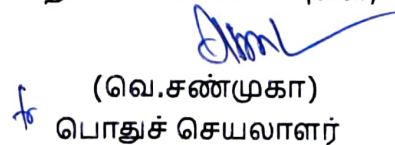 (வெ.சண்முகா)
பொதுச் செயலாளர்